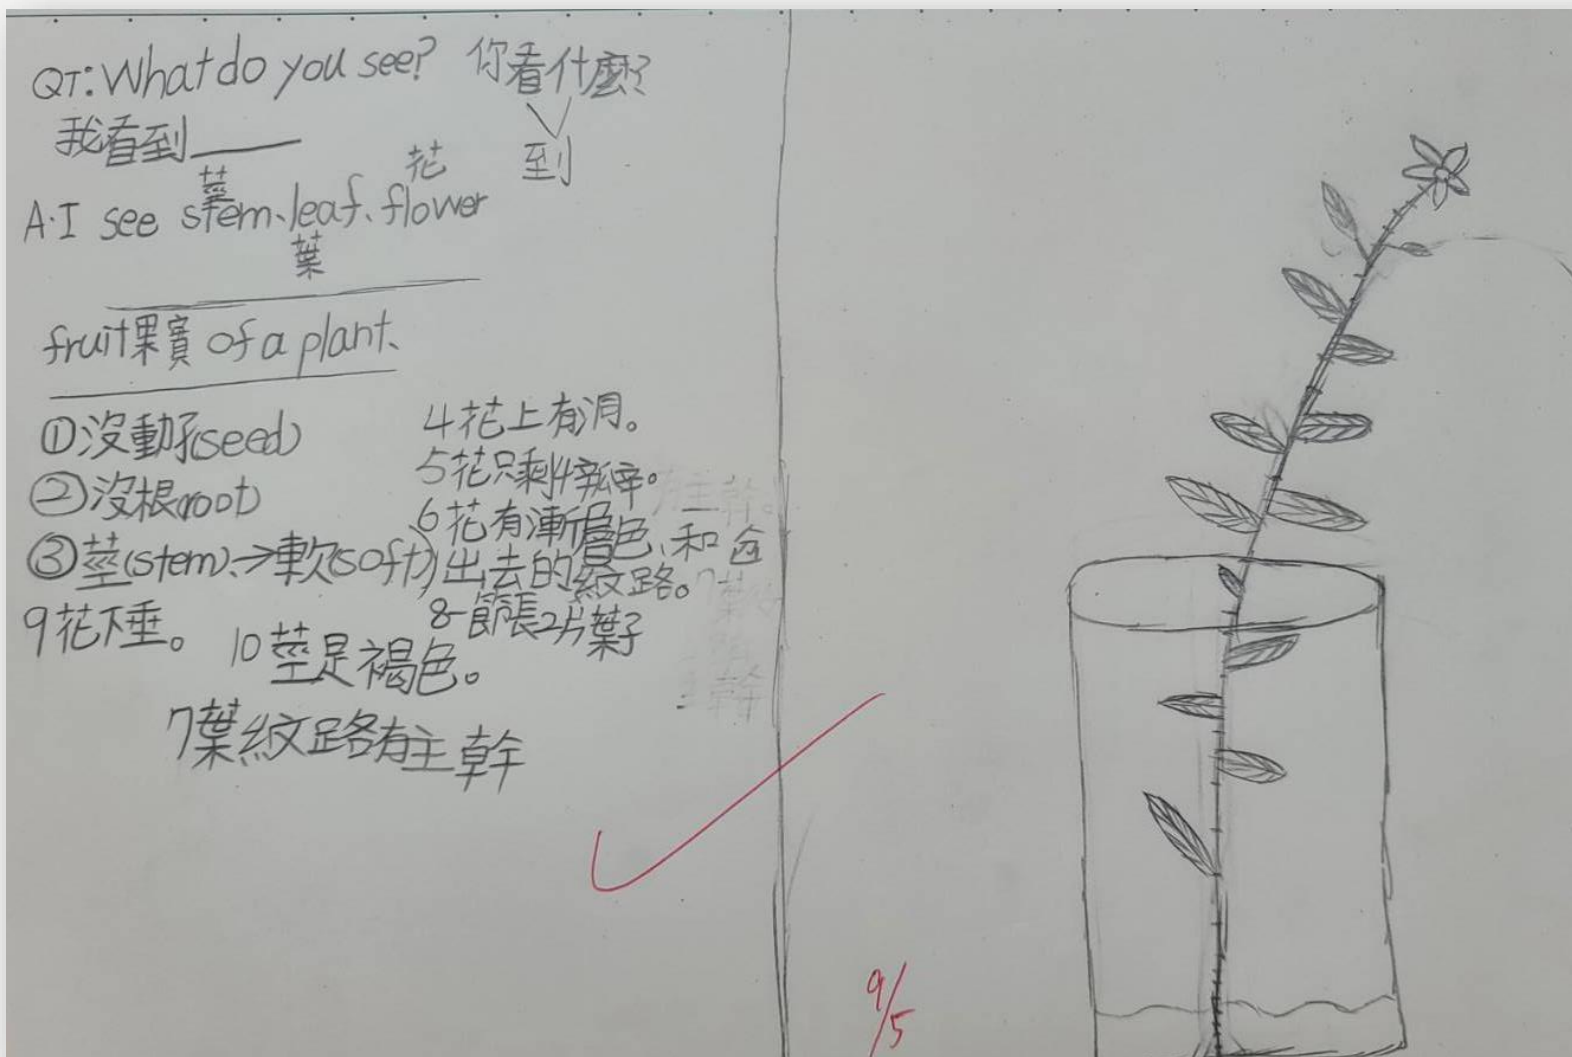 Q1:What do you see? 你看什麼?
到
我看到
花
莖
A.I see stem、leaf、flower
葉
fruit果實 of a plant、
①沒動孔(seed)
②沒根(root)
③莖(stem)、→軟(soft)
4花上有洞。
5花只剩4瓣。
6花有漸層色、和
出去的紋路。
8一節長2片葉子
9花下垂。
10莖是褐色。
7葉紋路有主幹
9/5